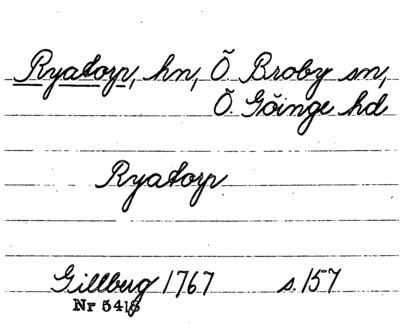 Ryatorp, hn, Ö. Broby sn,
Ö. Göinge hd
Ryatorp
Gillberg 1767 s. 157
Nr 5418